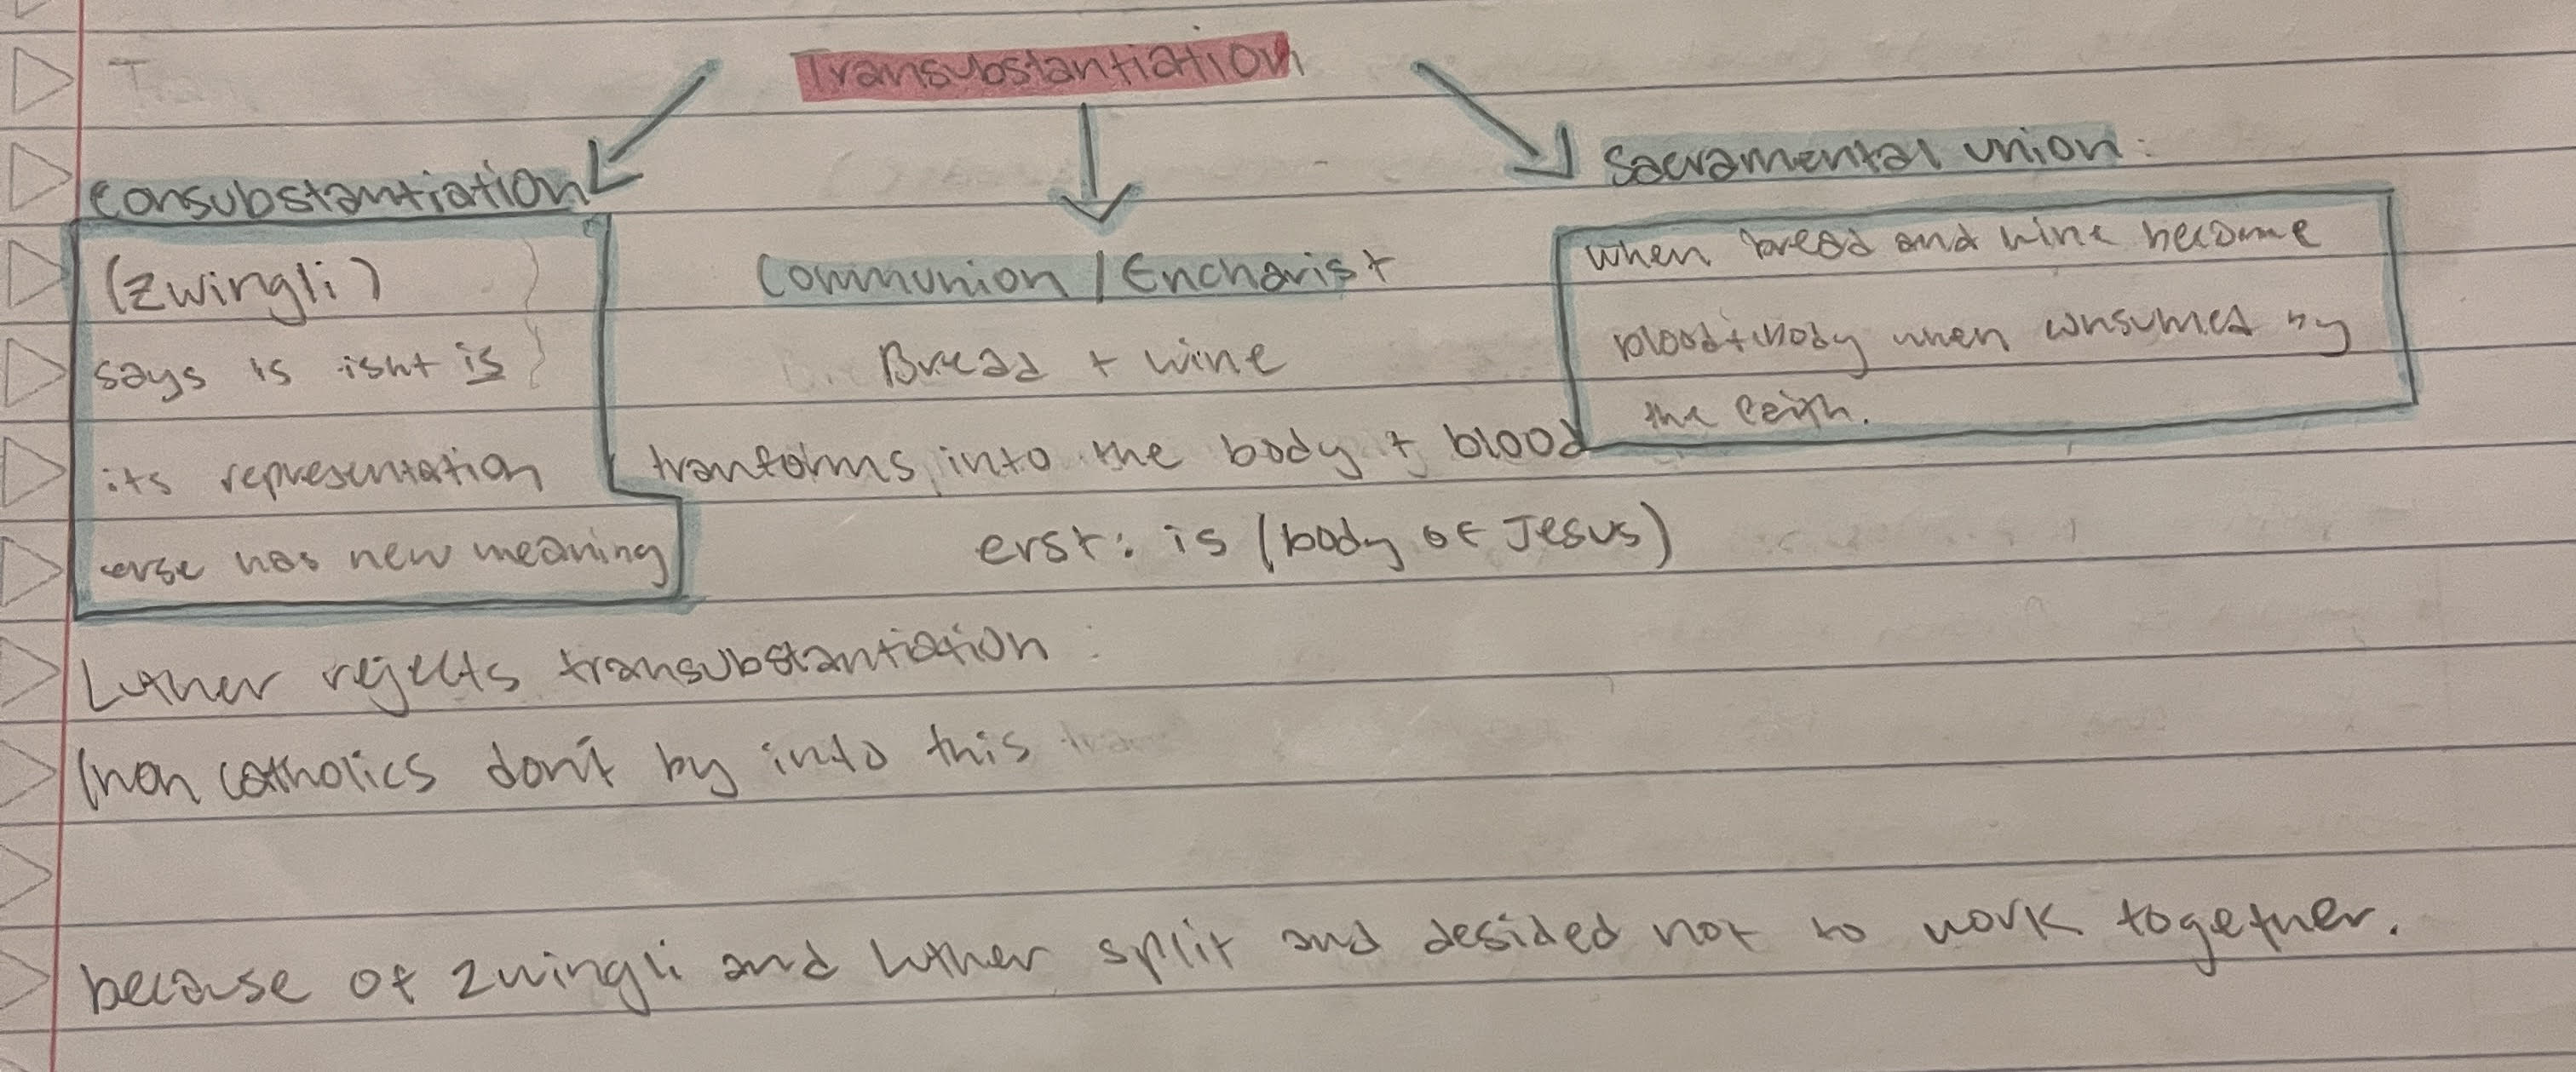 Transubstantiation
Consubstantiation
(Zwingli)
says is isnt is
its representation
has new meaning
Communion / Encharist
Bread + wine
tranforms into the body + blood
erst: is (body of Jesus)
Sacramental union:
when bread and wine become
blood + body when consumed by
the
Luther rejects transubstantiation:
(non catholics don't by into this
because of Zwingli and Luther split and desided not to work together.